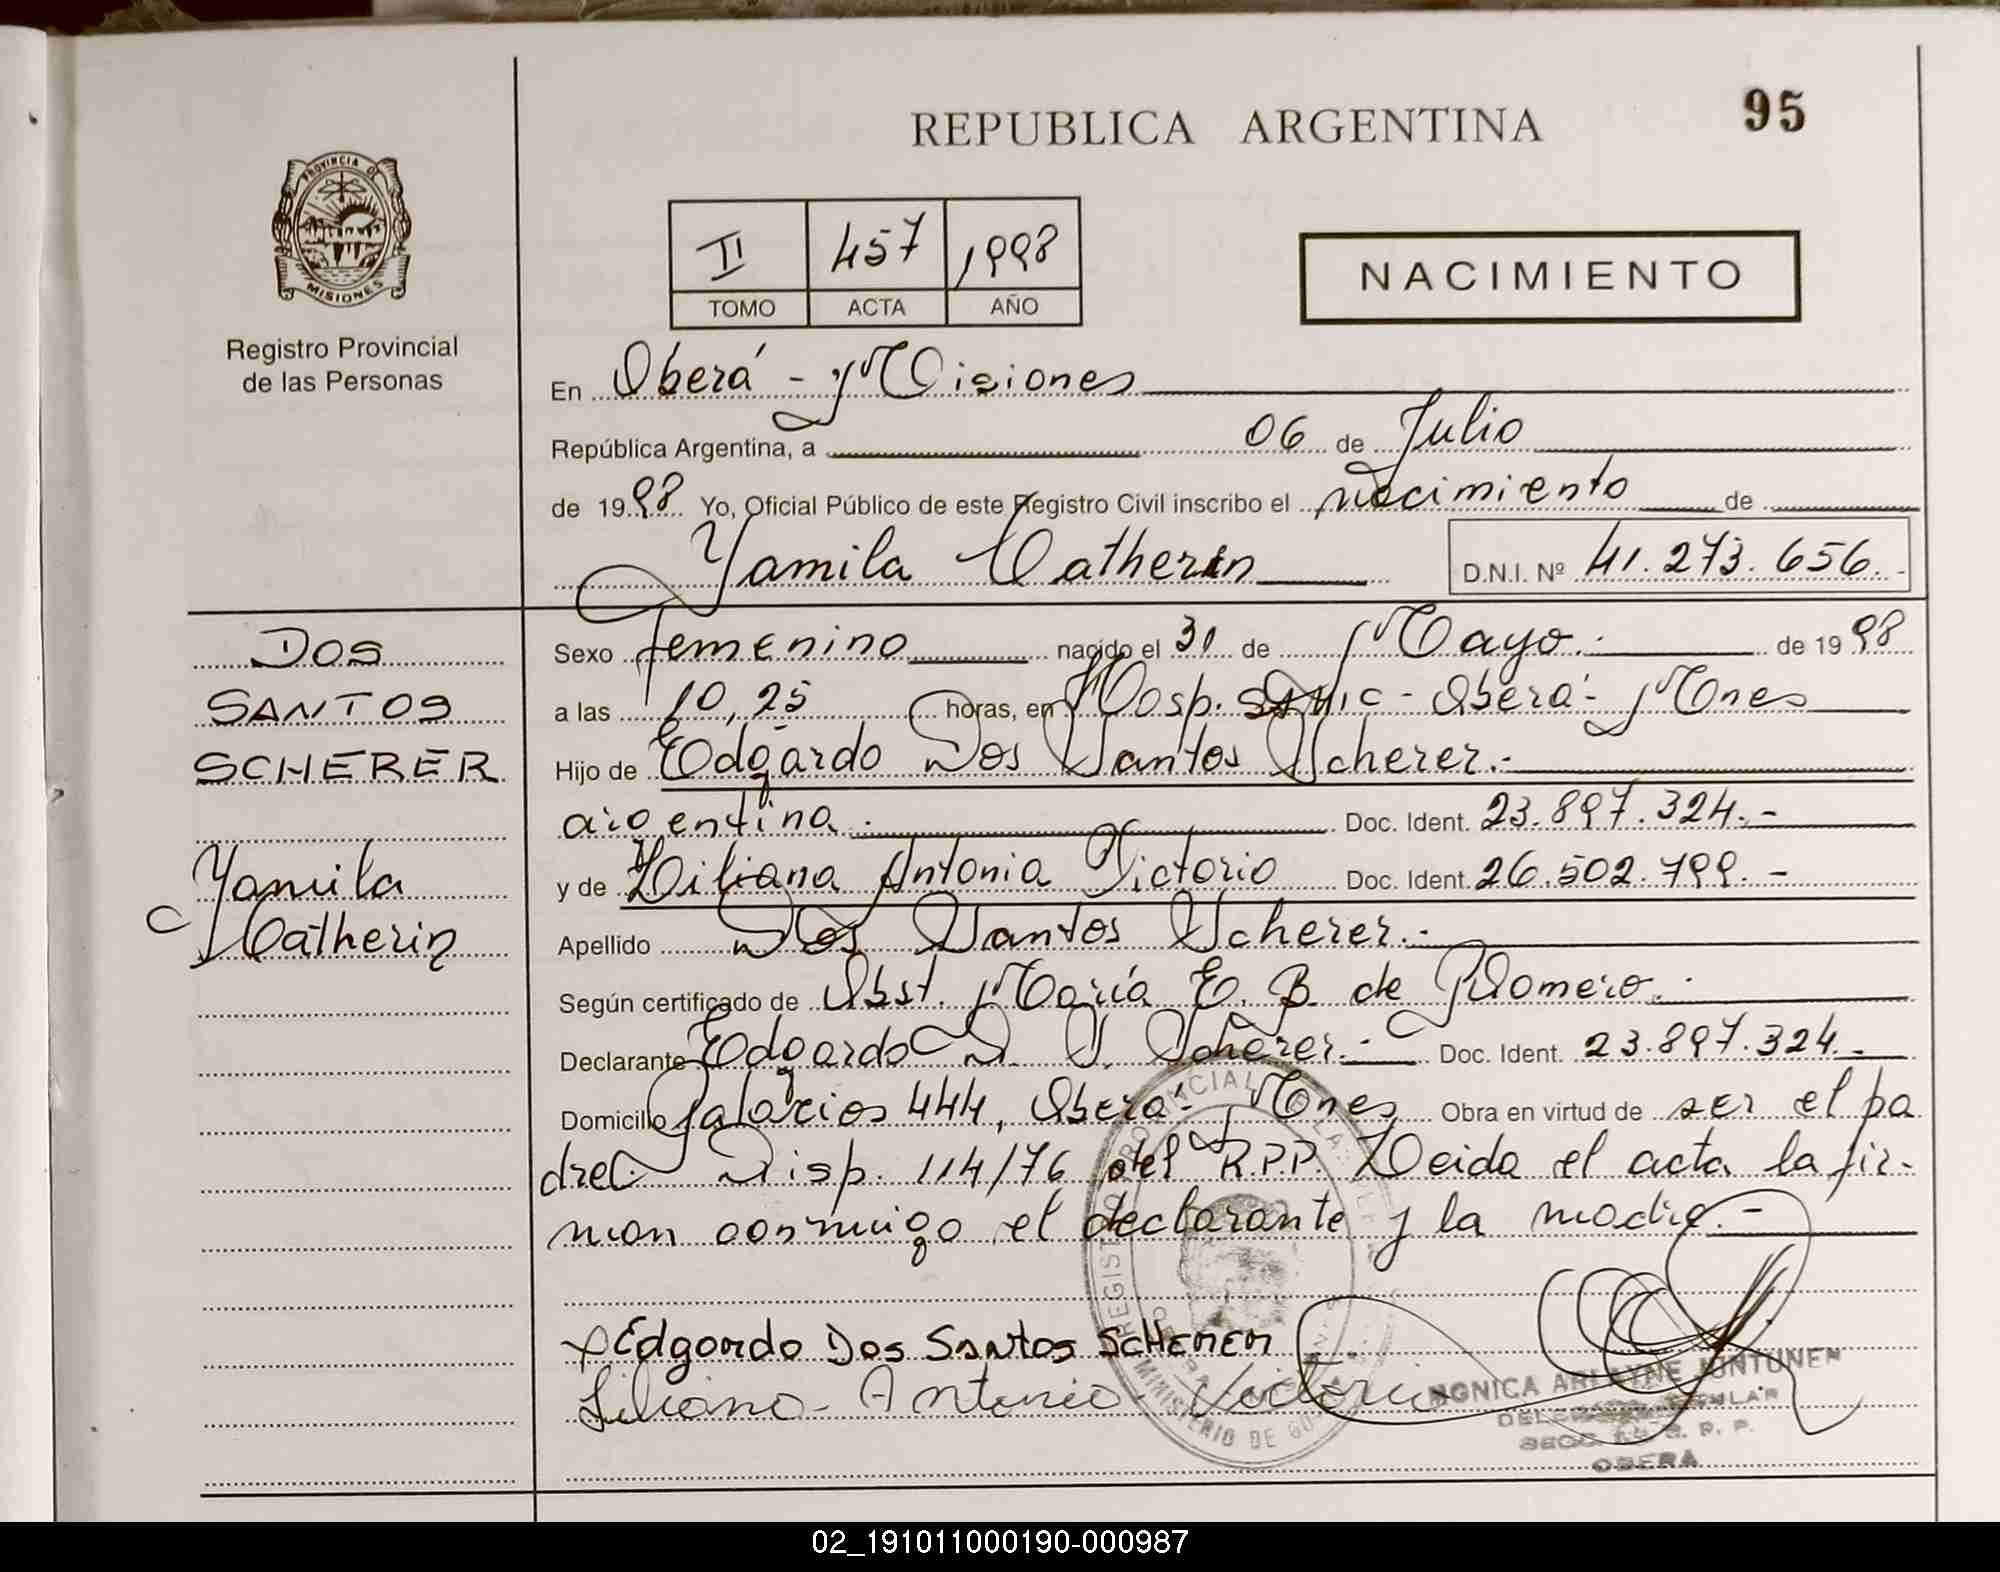 95
REPUBLICA ARGENTINA
PROVINCIA DE
MISIONES
Registro Provincial
de las Personas
II 457 1998
TOMO ACTA AÑO
NACIMIENTO
En Oberá - Misiones
República Argentina, a 06 de Julio
de 1998 Yo, Oficial Público de este Registro Civil inscribo el nacimiento de
Yamila Catherin D.N.I. Nº 41.273.656.-
DOS
SANTOS
SCHERER
Yamila
Catherin
Sexo femenino nacido el 31 de Mayo.- de 1998
a las 10,25 horas, en Hosp. SAMIC - Oberá - Mnes
Hijo de Edgardo Dos Santos Scherer.-
argentina.- Doc. Ident. 23.897.324.-
y de Liliana Antonia Victorio Doc. Ident. 26.502.799.-
Apellido Dos Santos Scherer.-
Según certificado de Obst. María E. B. de Romero.-
Declarante Edgardo D. S. Scherer.- Doc. Ident. 23.897.324.-
Domicilio Palacios 444, Oberá - Mnes Obra en virtud de ser el pa
dre. Disp. 114/76 del R.P.P. Leida el acta la fir-
man conmigo el declarante y la madre.-
x Edgardo Dos Santos SCHERER
Liliana Antonia Victorio
MONICA ARLAYNE JUNTUNEN
DELEGADA TITULAR
SECC. R. P. P.
OBERA
REGISTRO PROVINCIAL DE LAS
MINISTERIO DE GO
02_191011000190-000987